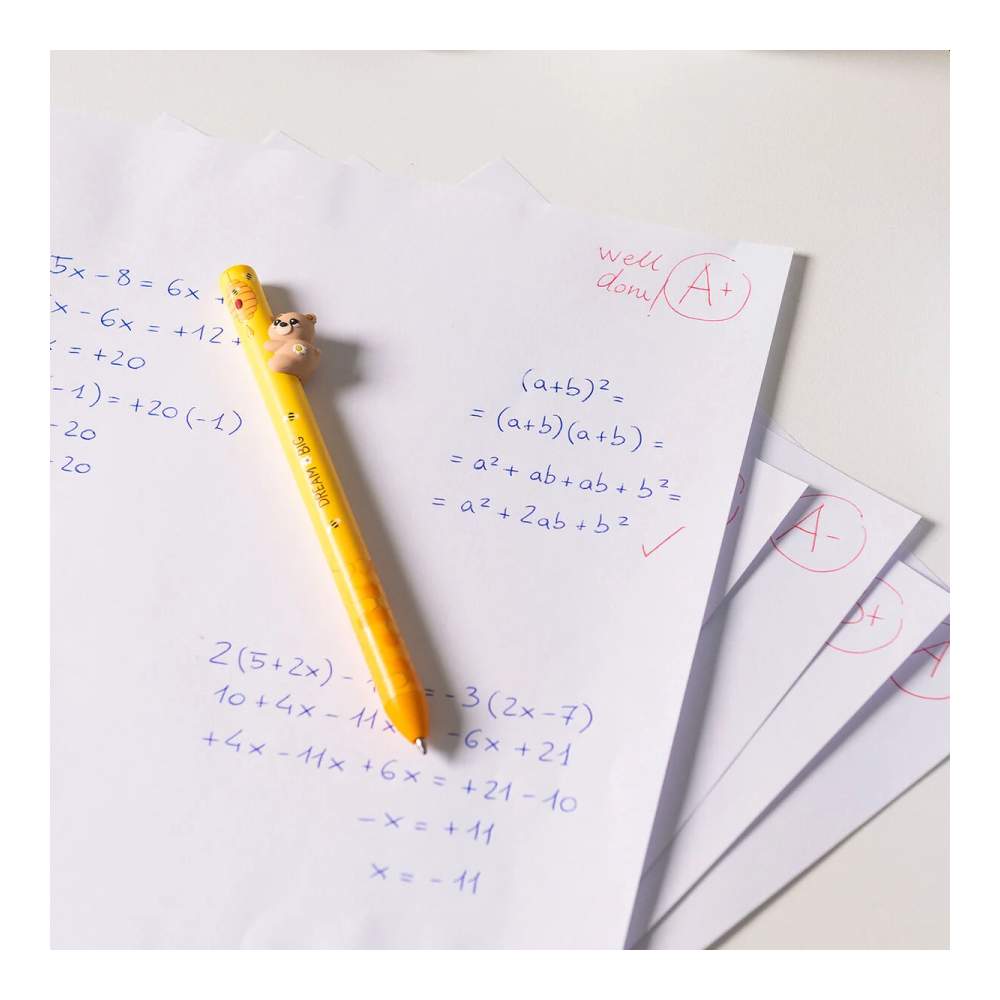 well
done!
A+
5x - 8 = 6x +
x - 6x = +12 +
= +20
-1) = +20(-1)
-20
-20
DREAM BIG
(a+b)² =
= (a+b)(a+b) =
= a² + ab + ab + b² =
= a² + 2ab + b²
A-
+
A
2(5+2x) - = -3(2x-7)
10 + 4x - 11x -6x + 21
+4x - 11x + 6x = +21 - 10
-x = +11
x = -11